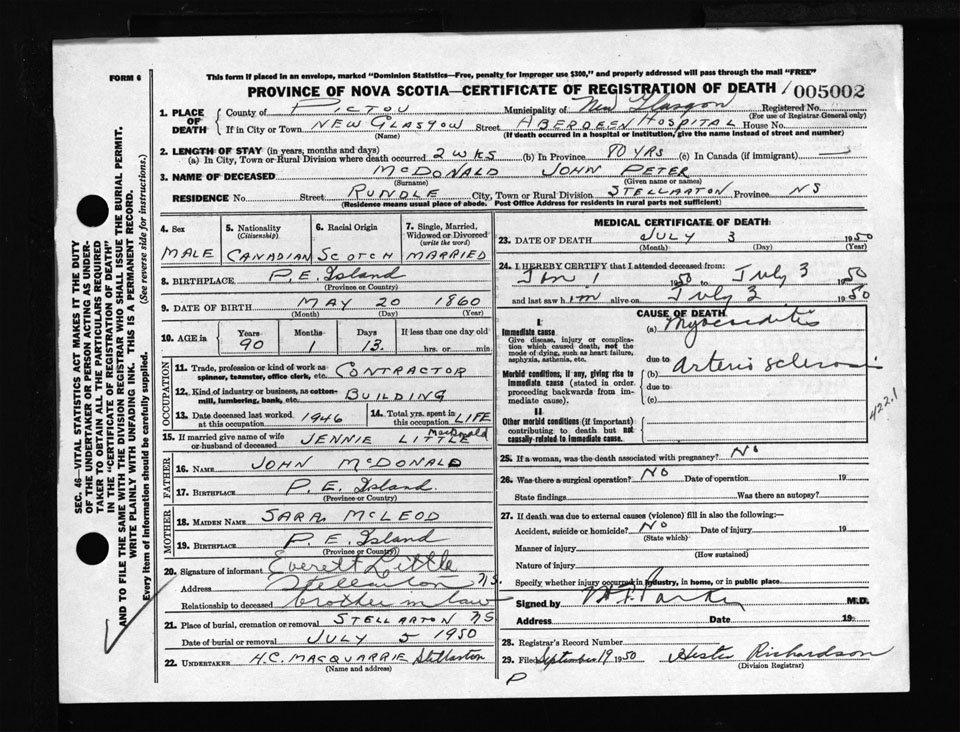 FORM 6
This form if placed in an envelope, marked "Dominion Statistics—Free, penalty for improper use $300," and properly addressed will pass through the mail "FREE"
PROVINCE OF NOVA SCOTIA—CERTIFICATE OF REGISTRATION OF DEATH 005002
1. PLACE OF DEATH
County of PICTOU Municipality of New Glasgow Registered No.
(For use of Registrar-General only)
If in City or Town NEW GLASGOW Street ABERDEEN HOSPITAL House No.
(Name) (If death occurred in a hospital or institution, give the name instead of street and number)
2. LENGTH OF STAY (in years, months and days)
(a) In City, Town or Rural Division where death occurred 2 WKS (b) In Province 80 YRS (c) In Canada (if immigrant) —
3. NAME OF DECEASED MCDONALD JOHN PETER
(Surname) (Given name or names)
RESIDENCE No. Street RUNDLE City, Town or Rural Division STELLARTON Province NS
(Residence means usual place of abode. Post Office Address for residents in rural parts not sufficient)
4. Sex
MALE
5. Nationality
(Citizenship)
CANADIAN
6. Racial Origin
SCOTCH
7. Single, Married, Widowed or Divorced
(write the word)
MARRIED
8. BIRTHPLACE P.E. Island
(Province or Country)
9. DATE OF BIRTH MAY 20 1860
(Month) (Day) (Year)
10. AGE in
Years Months Days If less than one day old
90 1 13. hrs. or min
OCCUPATION
11. Trade, profession or kind of work as spinner, teamster, office clerk, etc. CONTRACTOR
12. Kind of industry or business, as cotton-mill, lumbering, bank, etc. BUILDING
13. Date deceased last worked at this occupation 1946
14. Total yrs. spent in this occupation LIFE
15. If married give name of wife or husband of deceased JENNIE LITTLE MacDonald
FATHER
16. NAME JOHN MCDONALD
17. BIRTHPLACE P.E. Island.
(Province or Country)
MOTHER
18. MAIDEN NAME SARA MCLEOD
19. BIRTHPLACE P.E. Island
(Province or Country)
20. Signature of informant Everett Little
Address Stellarton NS.
Relationship to deceased brother in law
21. Place of burial, cremation or removal STELLARTON NS
Date of burial or removal JULY 5 1950
22. UNDERTAKER H.C. MACQUARRIE Stellarton
(Name and address)
MEDICAL CERTIFICATE OF DEATH
23. DATE OF DEATH JULY 3 1950
(Month) (Day) (Year)
24. I HEREBY CERTIFY that I attended deceased from:
Jan 1 1950 to July 3 1950
and last saw him alive on July 3 1950
CAUSE OF DEATH
I.
Immediate cause
Give disease, injury or complication which caused death, not the mode of dying, such as heart failure, asphyxia, asthenia, etc.
(a) Myocarditis
due to
Morbid conditions, if any, giving rise to immediate cause (stated in order proceeding backwards from immediate cause).
(b) Arterio sclerosis
due to
(c)
II.
Other morbid conditions (if important) contributing to death but not causally related to immediate cause.
422.1
25. If a woman, was the death associated with pregnancy? No
26. Was there a surgical operation? NO Date of operation 19
State findings Was there an autopsy?
27. If death was due to external causes (violence) fill in also the following:—
Accident, suicide or homicide? No Date of injury 19
(State which)
Manner of injury
(How sustained)
Nature of injury
Specify whether injury occurred in industry, in home, or in public place
Signed by Parker M.D.
Address Date 19
28. Registrar's Record Number
29. Filed September 19 1950 Hester Richardson
(Division Registrar)
P
SEC. 46—VITAL STATISTICS ACT MAKES IT THE DUTY
OF THE UNDERTAKER OR PERSON ACTING AS UNDER-
TAKER TO OBTAIN ALL THE PARTICULARS REQUIRED
IN THE "CERTIFICATE OF REGISTRATION OF DEATH"
AND TO FILE THE SAME WITH THE DIVISION REGISTRAR WHO SHALL ISSUE THE BURIAL PERMIT.
WRITE PLAINLY WITH UNFADING INK. THIS IS A PERMANENT RECORD.
Every item of information should be carefully supplied. (See reverse side for instructions.)